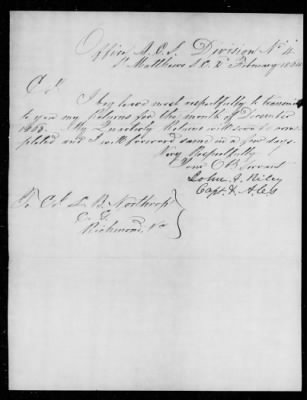 Office A.C.S. Division No 4
St Matthews S.C. 2d February 1864
Col
I beg leave most respectfully to transmit
to you my Returns for the month of December
1863. My Quarterly Returns will soon be com-
pleted and I will forward same in a few days.
Very Respectfully
Your Ob Servant
John A. Riley
Capt. & A.C.S
To Col L. B. Northrop
C. G.
Richmond, Va